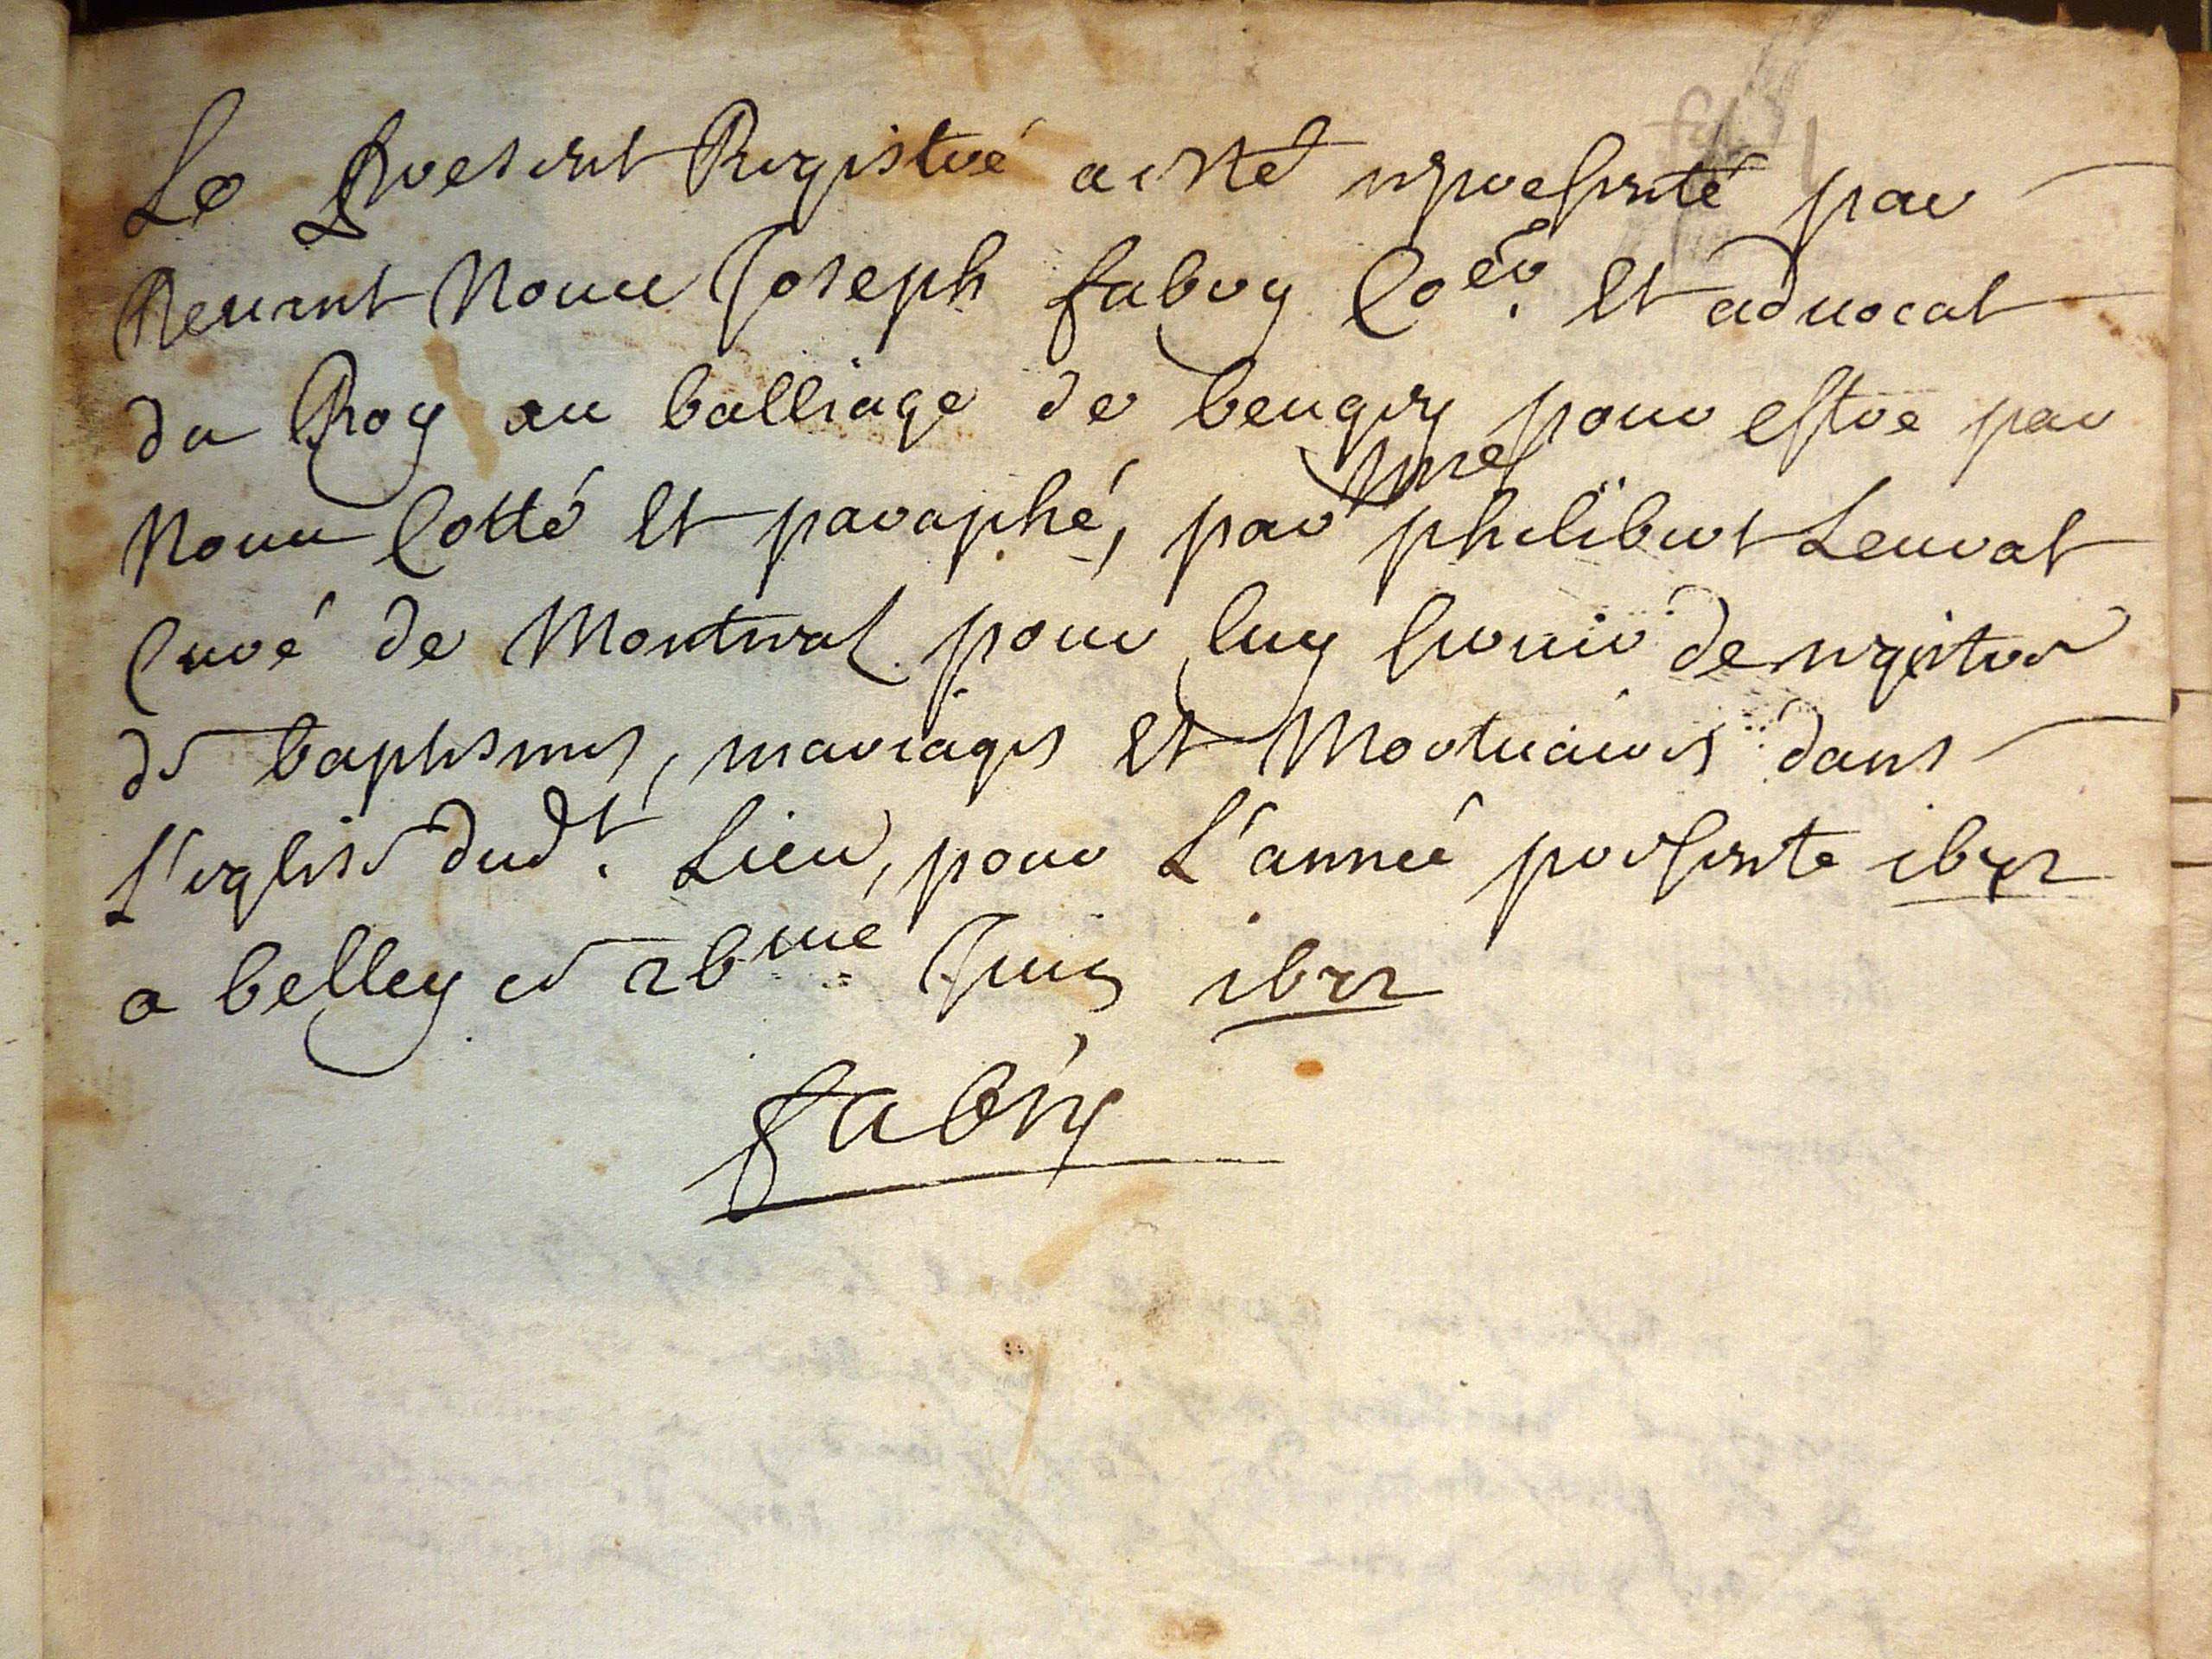 Le present Registré a esté representé par
Devant Nous Joseph fabry Coer. Et advocat
du Roy au balliage de beugey pour estre par
Nous Cotté Et paraphé, par mre philibert Leurat
Curé de Montreal pour luy servir de registre
de baptismes, mariages Et Mortuaires dans
L'eglise dudt. Lieu, pour L'année presente
a belley ce 26me Juin
fabry